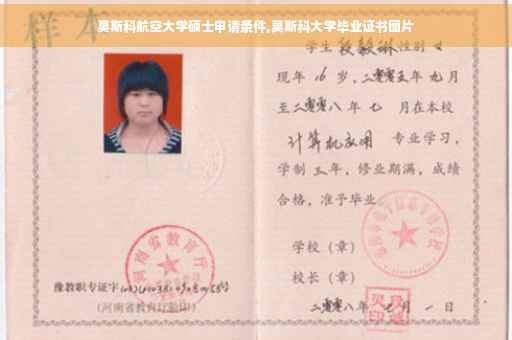 莫斯科航空大学硕士申请条件,莫斯科大学毕业证书图片
样本
学生 段毅琳 性别 女
现年 16 岁,二零零五年 九月
至二零零八年 七 月在本校
计算机应用 专业学习,
学制 三年,修业期满,成绩
合格,准予毕业
学校(章)
校长(章)
二零零八年 七 月 一 日
河南省教育厅
豫教职专证字
(河南省教育厅验印)